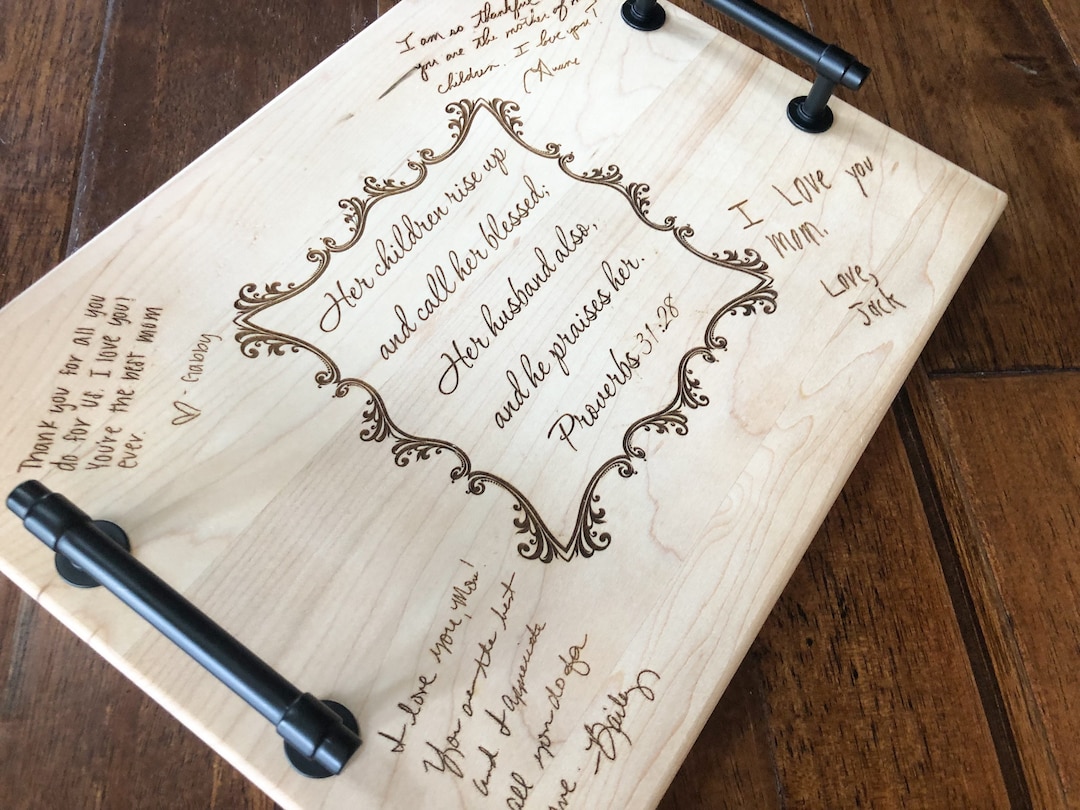 I am so thankful
you are the mother of
children. I love you!
Duane
Her children rise up
and call her blessed;
Her husband also,
and he praises her.
Proverbs 31:28
I Love you
mom.
Love,
Jack
Thank you for all you
do for us. I love you!
You're the best mom
ever.
- Gabby
I love you, Mom!
You are the best
and I appreciate
all you do for
Bailey